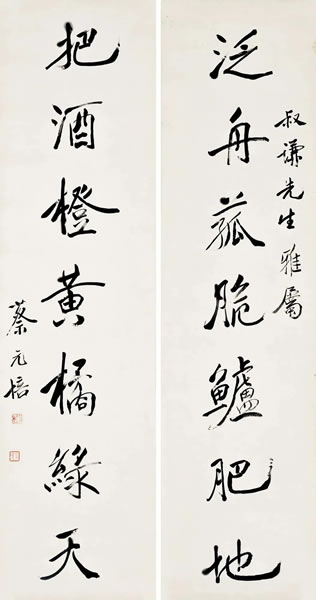 叔謙先生雅屬
泛舟菰脆鱸肥地
把酒橙黃橘綠天
蔡元培